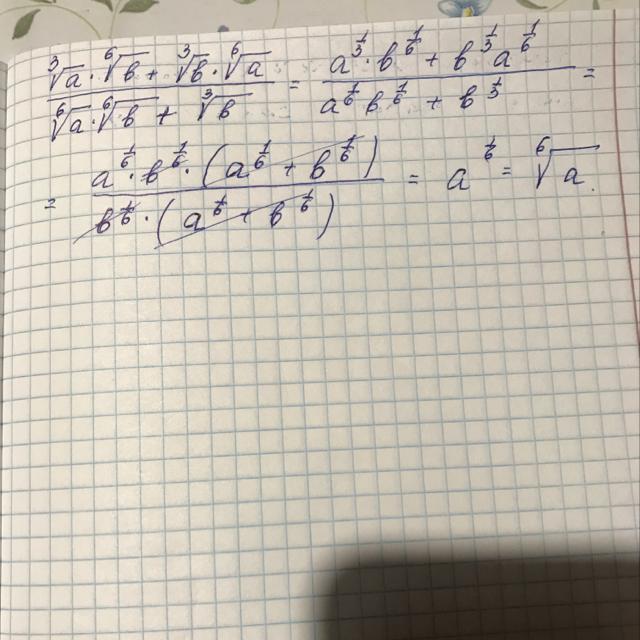 ∛a · ⁶√b + ∛b · ⁶√a / ⁶√a · ⁶√b + ∛b = a^(1/3) · b^(1/6) + b^(1/3) a^(1/6) / a^(1/6) b^(1/6) + b^(1/3) =
= a^(1/6) · b^(1/6) · (a^(1/6) + b^(1/6)) / b^(1/6) · (a^(1/6) + b^(1/6)) = a^(1/6) = ⁶√a.